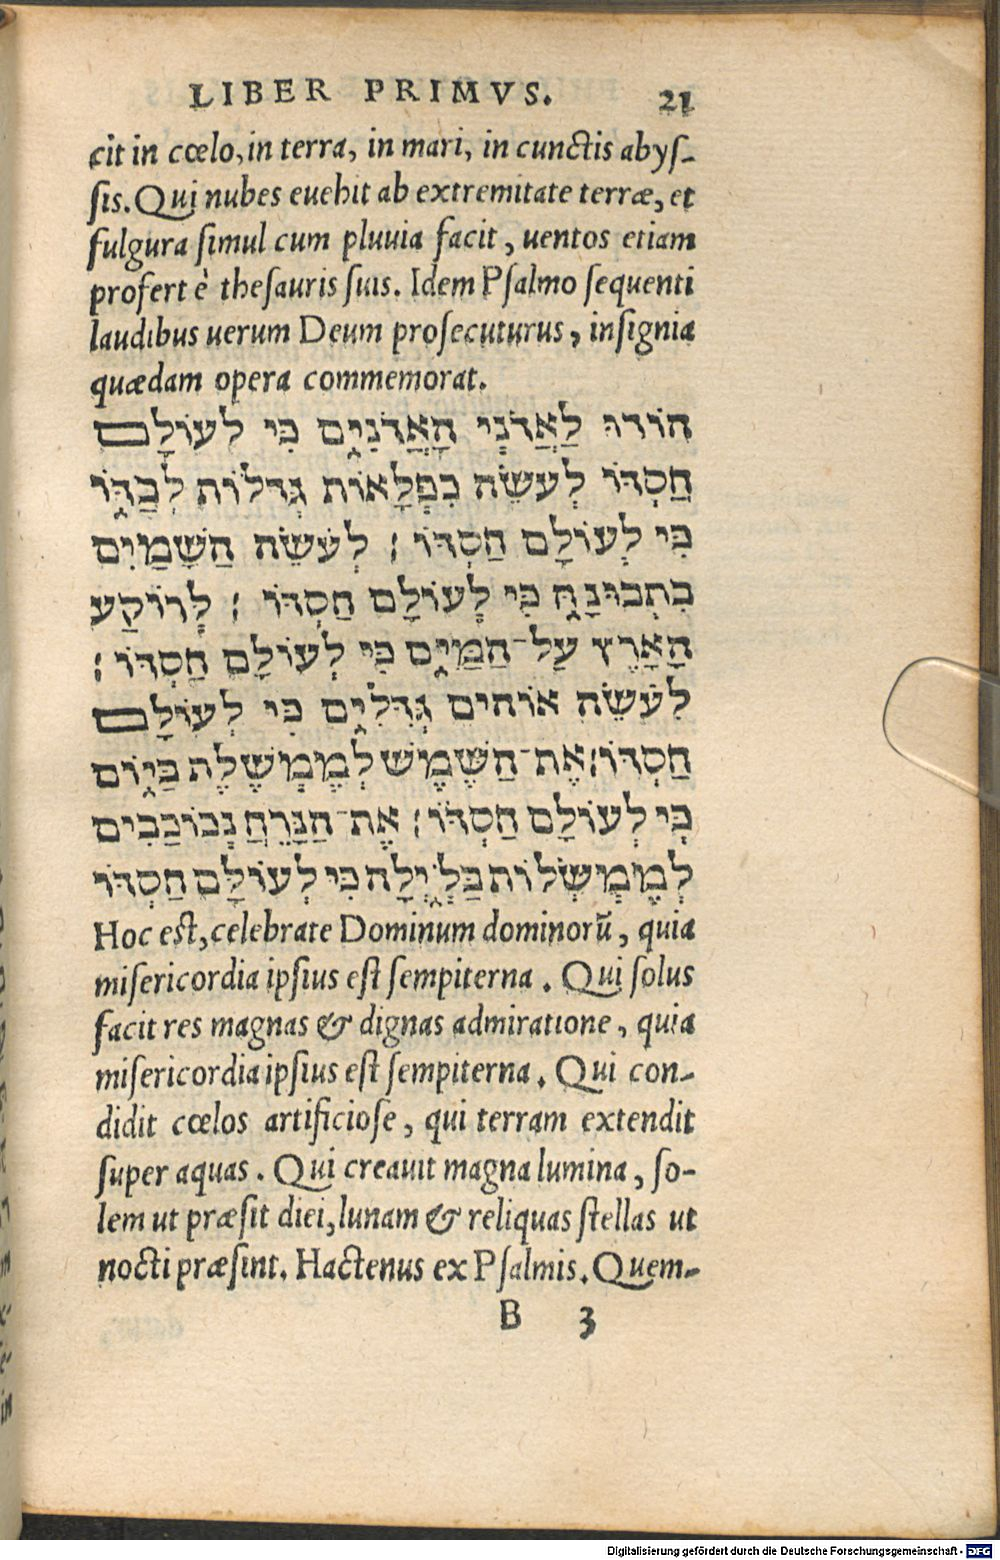 LIBER PRIMVS. 21
cit in cœlo, in terra, in mari, in cunctis abyſ-
ſis. Qui nubes euehit ab extremitate terræ, et
fulgura ſimul cum pluuia facit, uentos etiam
profert è theſauris ſuis. Idem Pſalmo ſequenti
laudibus uerum Deum proſecuturus, inſignia
quædam opera commemorat.
הוֹדוּ לַאֲדֹנֵי הָאֲדֹנִים כִּי לְעוֹלָם
חַסְדּוֹ לְעֹשֵׂה נִפְלָאוֹת גְּדֹלוֹת לְבַדּוֹ
כִּי לְעוֹלָם חַסְדּוֹ ׃ לְעֹשֵׂה הַשָּׁמַיִם
בִּתְבוּנָה כִּי לְעוֹלָם חַסְדּוֹ ׃ לְרוֹקַע
הָאָרֶץ עַל־הַמַּיִם כִּי לְעוֹלָם חַסְדּוֹ ׃
לְעֹשֵׂה אוֹרִים גְּדֹלִים כִּי לְעוֹלָם
חַסְדּוֹ׃ אֶת־הַשֶּׁמֶשׁ לְמֶמְשֶׁלֶת בַּיּוֹם
כִּי לְעוֹלָם חַסְדּוֹ׃ אֶת־הַיָּרֵחַ וְכוֹכָבִים
לְמֶמְשְׁלוֹת בַּלָּיְלָה כִּי לְעוֹלָם חַסְדּוֹ
Hoc eſt, celebrate Dominum dominorũ, quia
miſericordia ipſius eſt ſempiterna. Qui ſolus
facit res magnas & dignas admiratione, quia
miſericordia ipſius eſt ſempiterna. Qui con-
didit cœlos artificioſe, qui terram extendit
ſuper aquas. Qui creauit magna lumina, ſo-
lem ut præſit diei, lunam & reliquas ſtellas ut
nocti præſint. Hactenus ex Pſalmis. Quem-
B 3
Digitalisierung gefördert durch die Deutsche Forschungsgemeinschaft - DFG